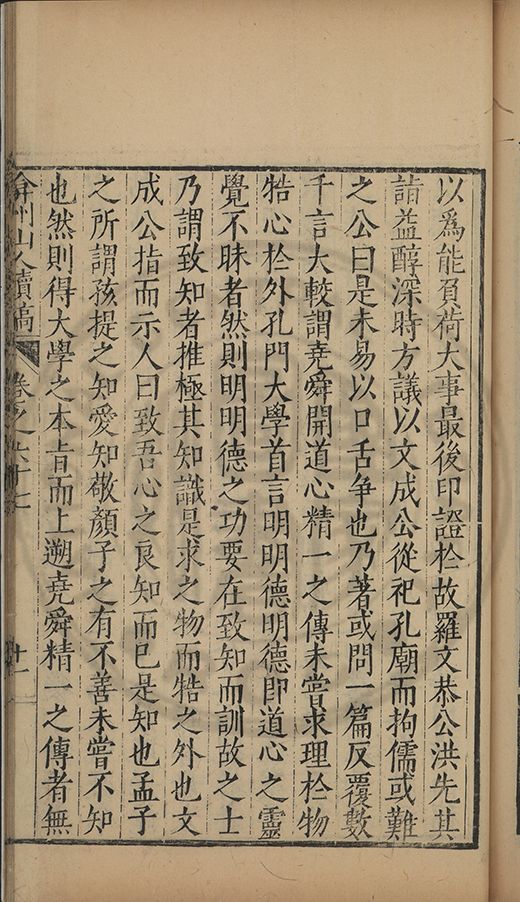 以爲能負荷大事最後印證於故羅文恭公洪先其
詣益醇深時方議以文成公從祀孔廟而拘儒或難
之公曰是未易以口舌争也乃著或問一篇反覆數
千言大較謂堯舜開道心精一之傳未嘗求理於物
牿心於外孔門大學首言明明德明德即道心之靈
覺不昧者然則明明德之功要在致知而訓故之士
乃謂致知者推極其知識是求之物而牿之外也文
成公指而示人曰致吾心之良知而已是知也孟子
之所謂孩提之知愛知敬顏子之有不善未嘗不知
也然則得大學之本旨而上遡堯舜精一之傳者無
弇州山人續稿 卷之六十七 十一